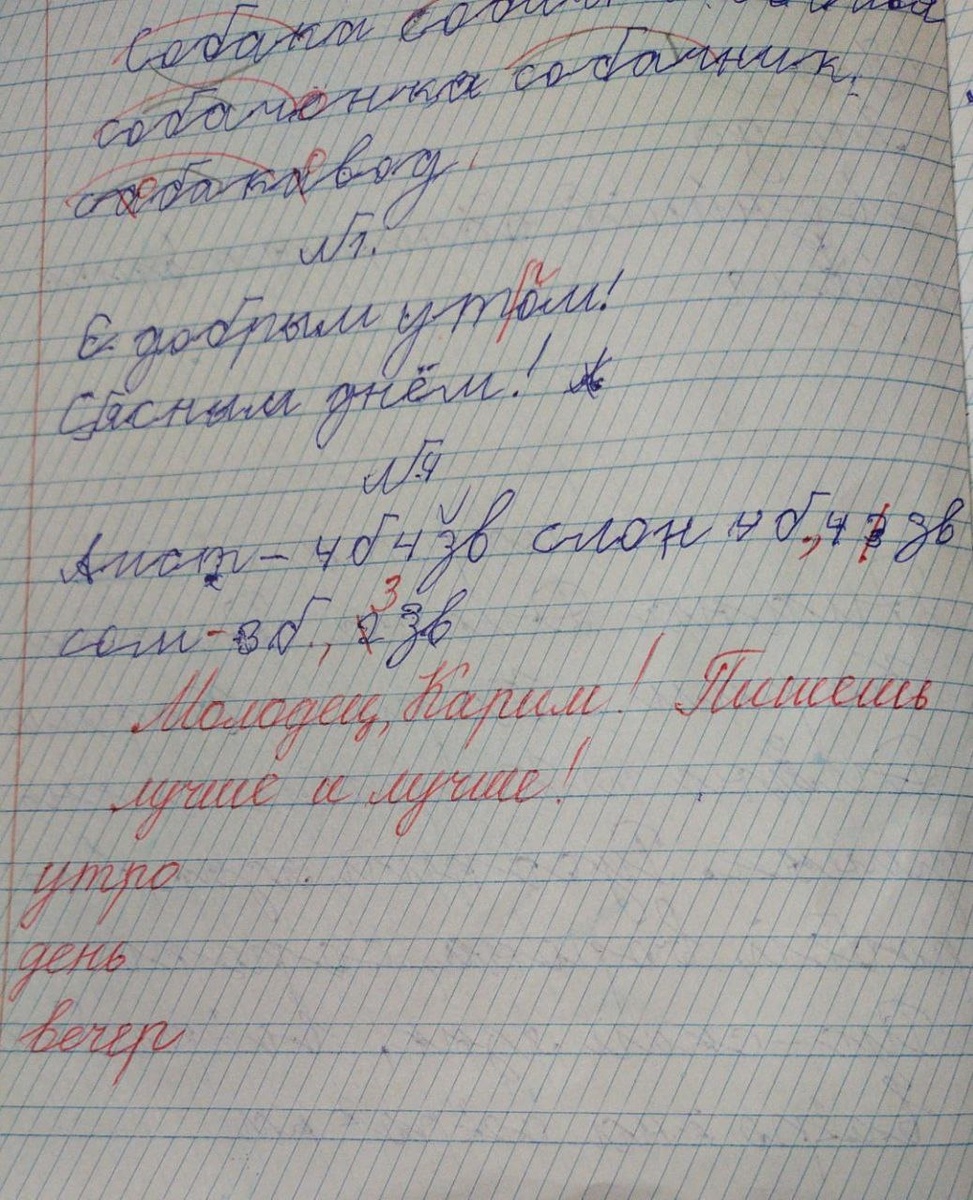 Собака
собачонка собачник,
собаковод.
№1.
С добрым утром!
С ясным днём!
№4
Аист - 4б 4 зв слон 4 б, 4 зв
сом - 3 б., 3 зв
Молодец, Карим! Пишешь
лучше и лучше!
утро
день
вечер